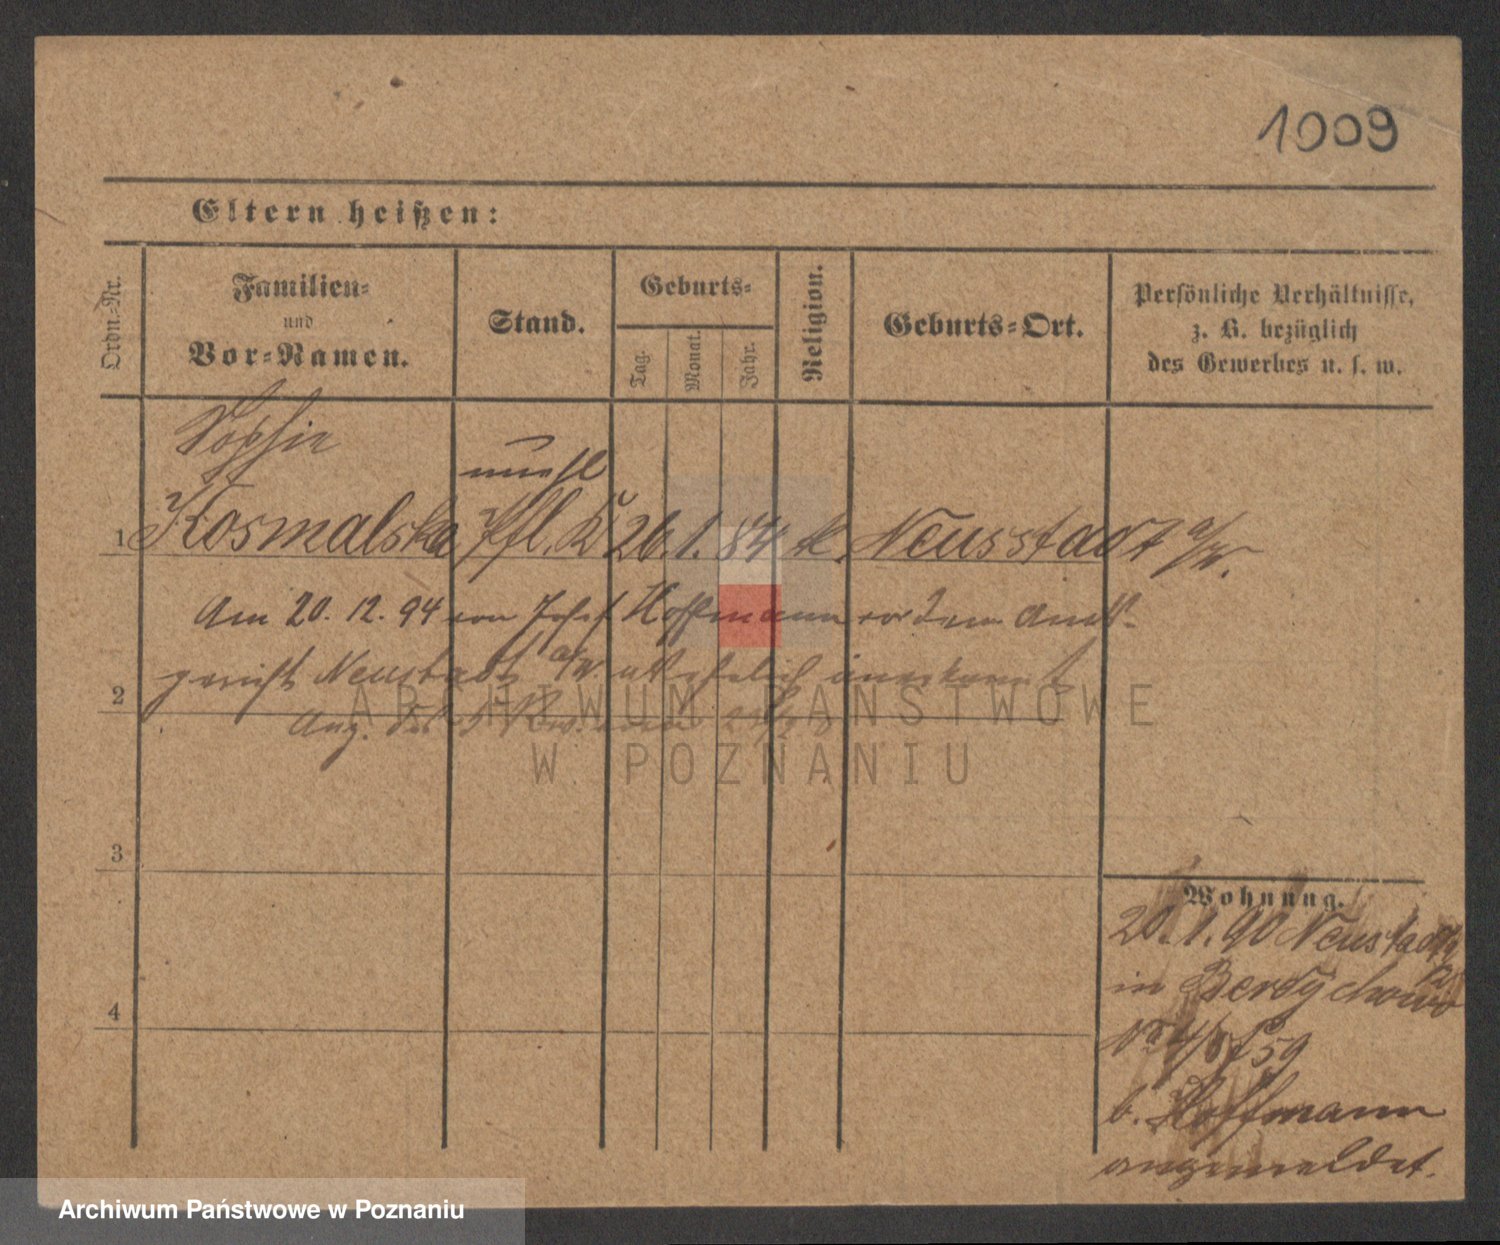 1009
Eltern heißen:
Ordn.-Nr.
Familien-
und
Vor-Namen.
Stand.
Geburts-
Tag.
Monat.
Jahr.
Religion.
Geburts-Ort.
Persönliche Verhältnisse,
z. B. bezüglich
des Gewerbes u. s. w.
Sophie
unehl
1 Kosmalska Pfl. K 26. 1. 84 k. Neusstadt a/W.
Am 20. 12. 94 von Josef Hoffmann vor dem Amts-
gericht Neustadt a/W. als ehelich anerkannt
2
Anz. des
ARCHIWUM PAŃSTWOWE
W POZNANIU
3
Wohnung.
20. 1. 90 Neustadt a/W
in Berdychowo
No 4/5 59
4
b. Hoffmann
angemeldet.
Archiwum Państwowe w Poznaniu